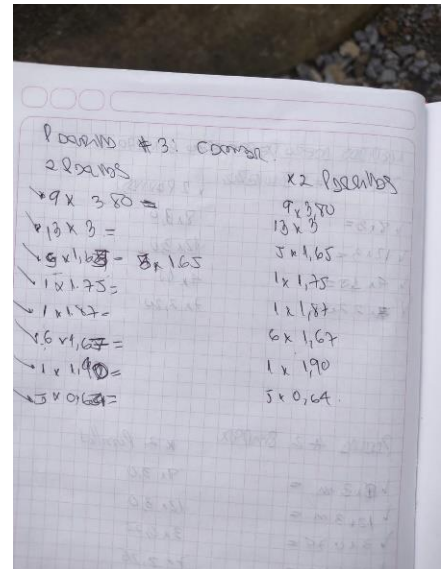 Pasillo # 3: Comer.
2 Pasillos
9 x 3.80 =
13 x 3 =
5 x 1,65 = 5 x 165
1 x 1.75 =
1 x 1.87 =
6 x 1,67 =
1 x 1,90 =
5 x 0,64 =
x 2 Pasillos
9 x 3,80
13 x 3
5 x 1,65
1 x 1,75
1 x 1,87
6 x 1,67
1 x 1,90
5 x 0,64